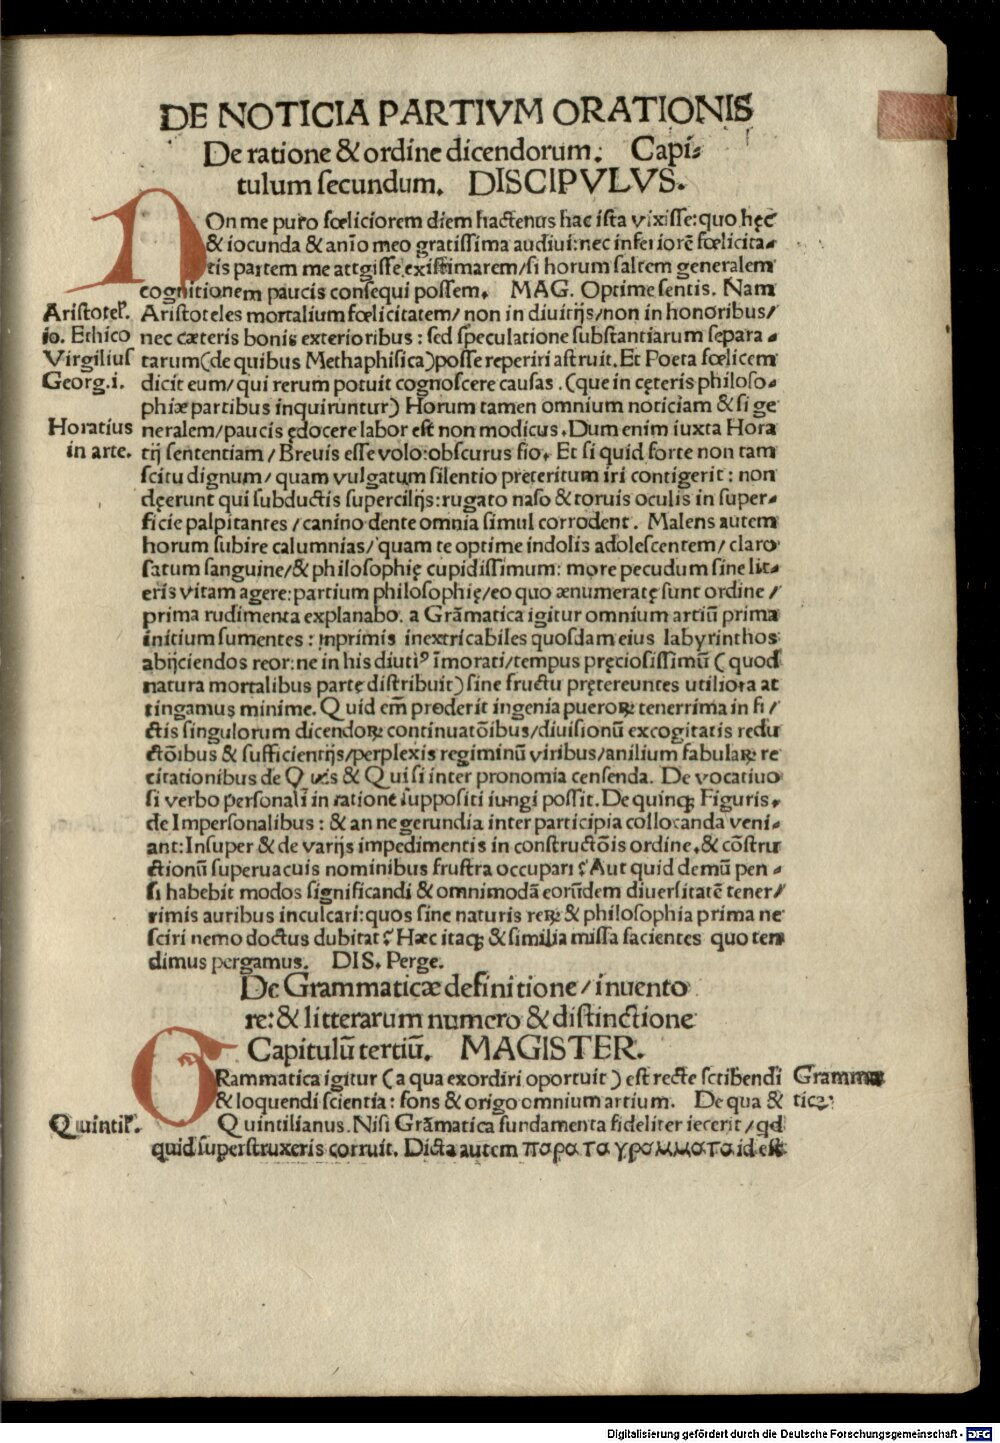 DE NOTICIA PARTIVM ORATIONIS
De ratione & ordine dicendorum. Capi-
tulum secundum. DISCIPVLVS.
NOn me puto fœliciorem diem hactenus hac ista vixisse: quo hęc
& iocunda & anīo meo gratissima audiui: nec inferiorē fœlicita-
tis partem me attgisse existimarem/ si horum saltem generalem
cognitionem paucis consequi possem. MAG. Optime sentis. Nam
Aristotel'. Aristoteles mortalium fœlicitatem/ non in diuitijs/ non in honoribus/
io. Ethico nec cæteris bonis exterioribus: sed speculatione substantiarum separa-
Virgilius tarum (de quibus Methaphisica) posse reperiri astruit. Et Poeta fœlicem
Georg. i. dicit eum/ qui rerum potuit cognoscere causas. (que in cęteris philoso-
phiæ partibus inquiruntur) Horum tamen omnium noticiam & si ge
Horatius neralem/ paucis ędocere labor est non modicus. Dum enim iuxta Hora
in arte. tij sententiam/ Breuis esse volo: obscurus fio. Et si quid forte non tam
scitu dignum/ quam vulgatum silentio preteritum iri contigerit: non
dęerunt qui subductis supercilijs: rugato naso & toruis oculis in super-
ficie palpitantes/ canino dente omnia simul corrodent. Malens autem
horum subire calumnias/ quam te optime indolis adolescentem/ claro
satum sanguine/ & philosophię cupidissimum: more pecudum sine lit-
eris vitam agere: partium philosophię/ eo quo ænumeratę sunt ordine/
prima rudimenta explanabo. a Grāmatica igitur omnium artiū prima
initium sumentes: inprimis inextricabiles quosdam eius labyrinthos
abijciendos reor: ne in his diuti⁹ īmorati/ tempus pręciosissimū (quod
natura mortalibus partę distribuit) sine fructu prętereuntes utiliora at
tingamus minime. Quid em̄ proderit ingenia pueroꝝ tenerrima in fi/
ctis singulorum dicendoꝝ continuatōibus/ diuisionū excogitatis redu
ctōibus & sufficientijs/ perplexis regiminū viribus/ anilium fabulaꝝ re
citationibus de Quis & Qui si inter pronomia censenda. De vocatiuo
si verbo personali in ratione suppositi iungi possit. De quinqꝫ Figuris.
de Impersonalibus: & an ne gerundia inter participia collocanda veni-
ant: Insuper & de varijs impedimentis in constructōis ordine. & cōstru
ctionū superuacuis nominibus frustra occupari? Aut quid demū pen-
si habebit modos significandi & omnimodā eorūdem diuersitatē tener/
rimis auribus inculcari: quos sine naturis reꝝ & philosophia prima ne
sciri nemo doctus dubitat? Hæc itaqꝫ & similia missa facientes quo ten
dimus pergamus. DIS. Perge.
De Grammaticæ definitione/ inuento
re: & litterarum numero & distinctione
Capitulū tertiū. MAGISTER.
GRammatica igitur (a qua exordiri oportuit) est recte scribendi Gramma
& loquendi scientia: fons & origo omnium artium. De qua & tica:
Quintil'. Quintilianus. Nisi Grāmatica fundamenta fideliter iecerit/ qd
quid superstruxeris corruit. Dicta autem παρα τα γραμματα id est
Digitalisierung gefördert durch die Deutsche Forschungsgemeinschaft - DFG